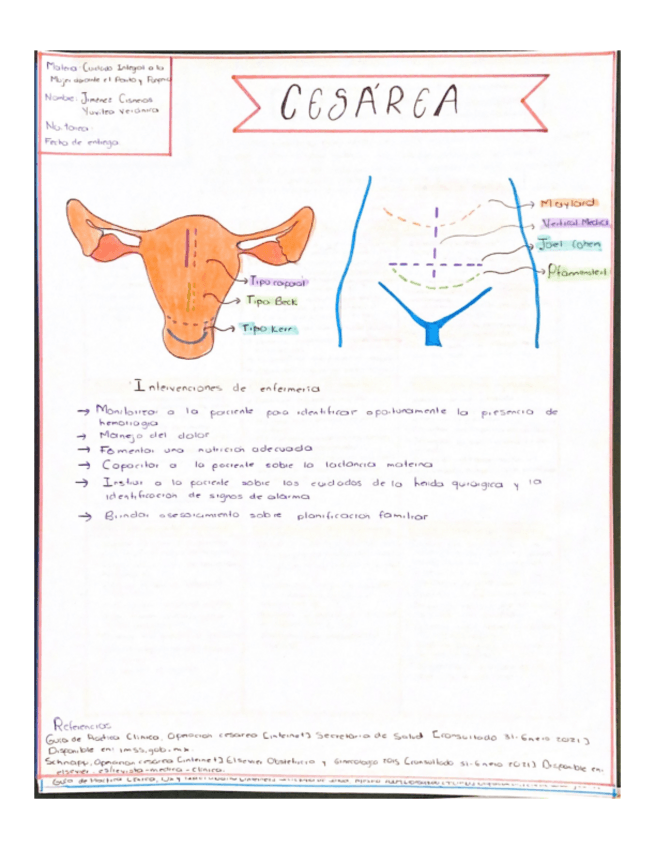 Materia: Cuidado Integral a la
Mujer durante el Parto y Puerpe
Nombre: Jiménez Cisneros
Verónica
No. tarea:
Fecha de entrega:
CESÁREA
Maylard
Vertical Media
Joel Cohen
Pfannenstiel
Tipo corporal
Tipo Beck
Tipo Kerr
Intervenciones de enfermería
→ Monitorizar a la paciente para identificar oportunamente la presencia de
hemorragia
→ Manejo del dolor
→ Fomentar una nutrición adecuada
→ Capacitar a la paciente sobre la lactancia materna
→ Instruir a la paciente sobre los cuidados de la herida quirúrgica y la
identificación de signos de alarma
→ Brindar asesoramiento sobre planificación familiar
Referencias
Guía de Práctica Clínica, Operación cesárea [internet] Secretaría de Salud [consultado 31-Enero 2021]
Disponible en: imss.gob.mx.
Schnapp, Operación cesárea [internet] Elsevier Obstetricia y Ginecología [consultado 31-Enero 2021] Disponible en:
elsevier.es/revista-medica-clinica.
Guía de Práctica Clínica,